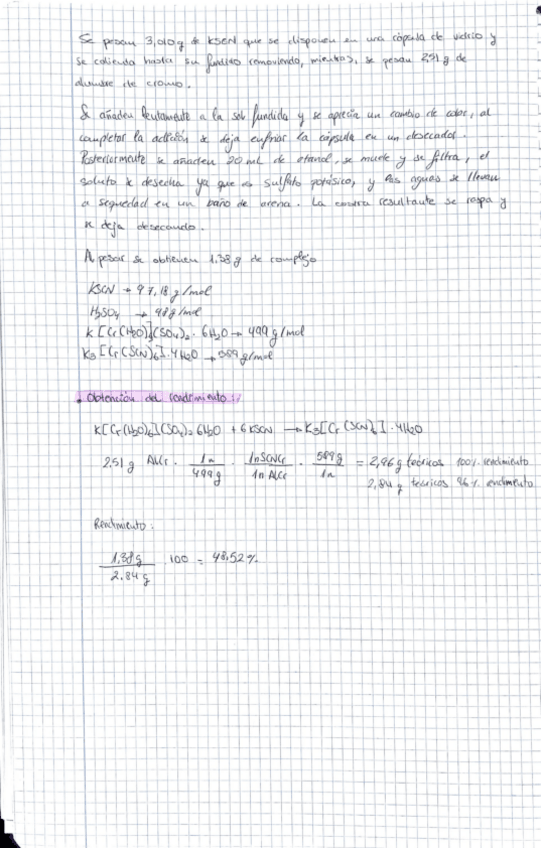 Se pesan 3,010g de KSCN que se disponen en una cápsula de vidrio y
se calienta hasta su fundido removiendo, mientras, se pesan 2,51 g de
alumbre de cromo.
Se añaden lentamente a la sal fundida y se aprecia un cambio de color, al
completar la adición se deja enfriar la cápsula en un desecador.
Posteriormente se añaden 20 mL de etanol, se muele y se filtra, el
soluto se desecha ya que es sulfato potásico, y las aguas se llevan
a sequedad en un baño de arena. La costra resultante se raspa y
se deja desecando.
A pesar se obtienen 1.38 g de complejo
KSCN → 97,18 g/mol
H2SO4 → 98 g/mol
K[Cr(H2O)6](SO4)2 · 6H2O → 499 g/mol
K3[Cr(SCN)6]·4H2O → 589 g/mol
· Obtención del rendimiento:
K[Cr(H2O)6](SO4)2 6H2O + 6KSCN → K3[Cr(SCN)6]·4H2O
2.51 g AlCr · 1n/499g · 1nSCNCr/1n AlCr · 589g/1n = 2,96 g teóricos 100% rendimiento
2,84 g teóricos 96% rendimiento
Rendimiento:
1,38g/2.84g · 100 = 48,52%